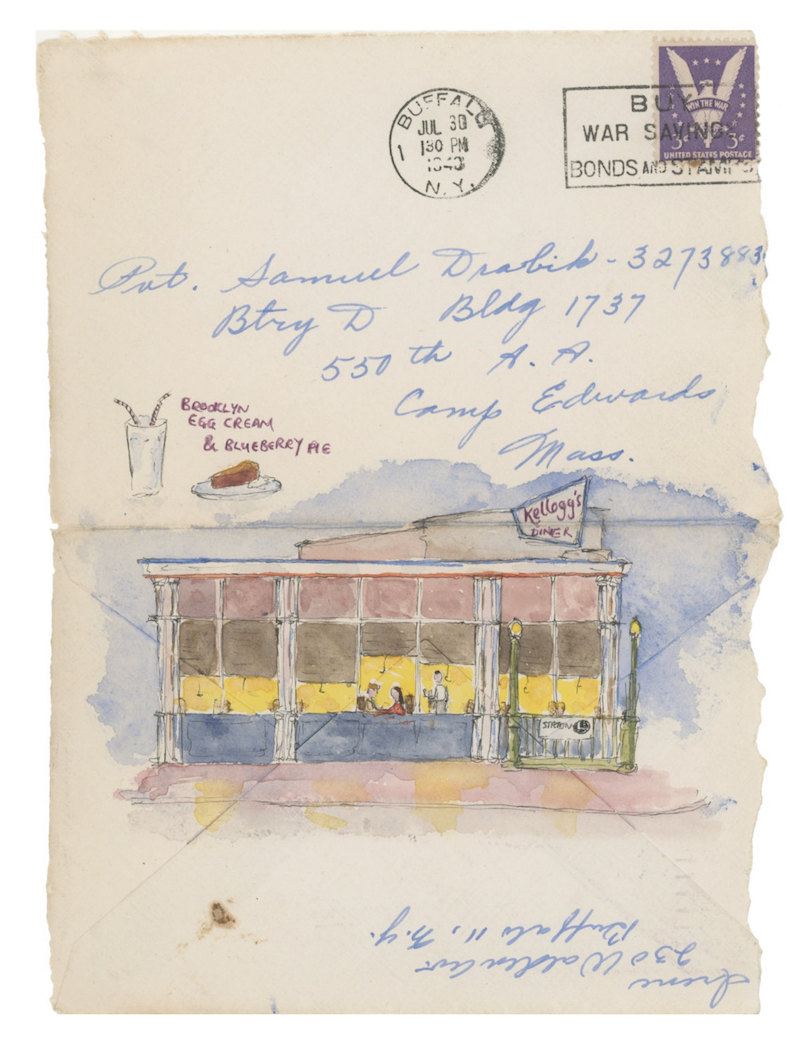 BUFFALO
JUL 30
1 30 PM
1943
N.Y.
1
BUY
WAR SAVINGS
BONDS AND STAMPS
WIN THE WAR
3¢ 3¢
UNITED STATES POSTAGE
Pvt. Samuel Drabik - 32738831
Btry D Bldg 1737
550th A. A.
Camp Edwards
Mass.
BROOKLYN
EGG CREAM
& BLUEBERRY PIE
Kellogg's
DINER
STATION
Irene
230 Walden Ave
Buffalo 11, N.Y.